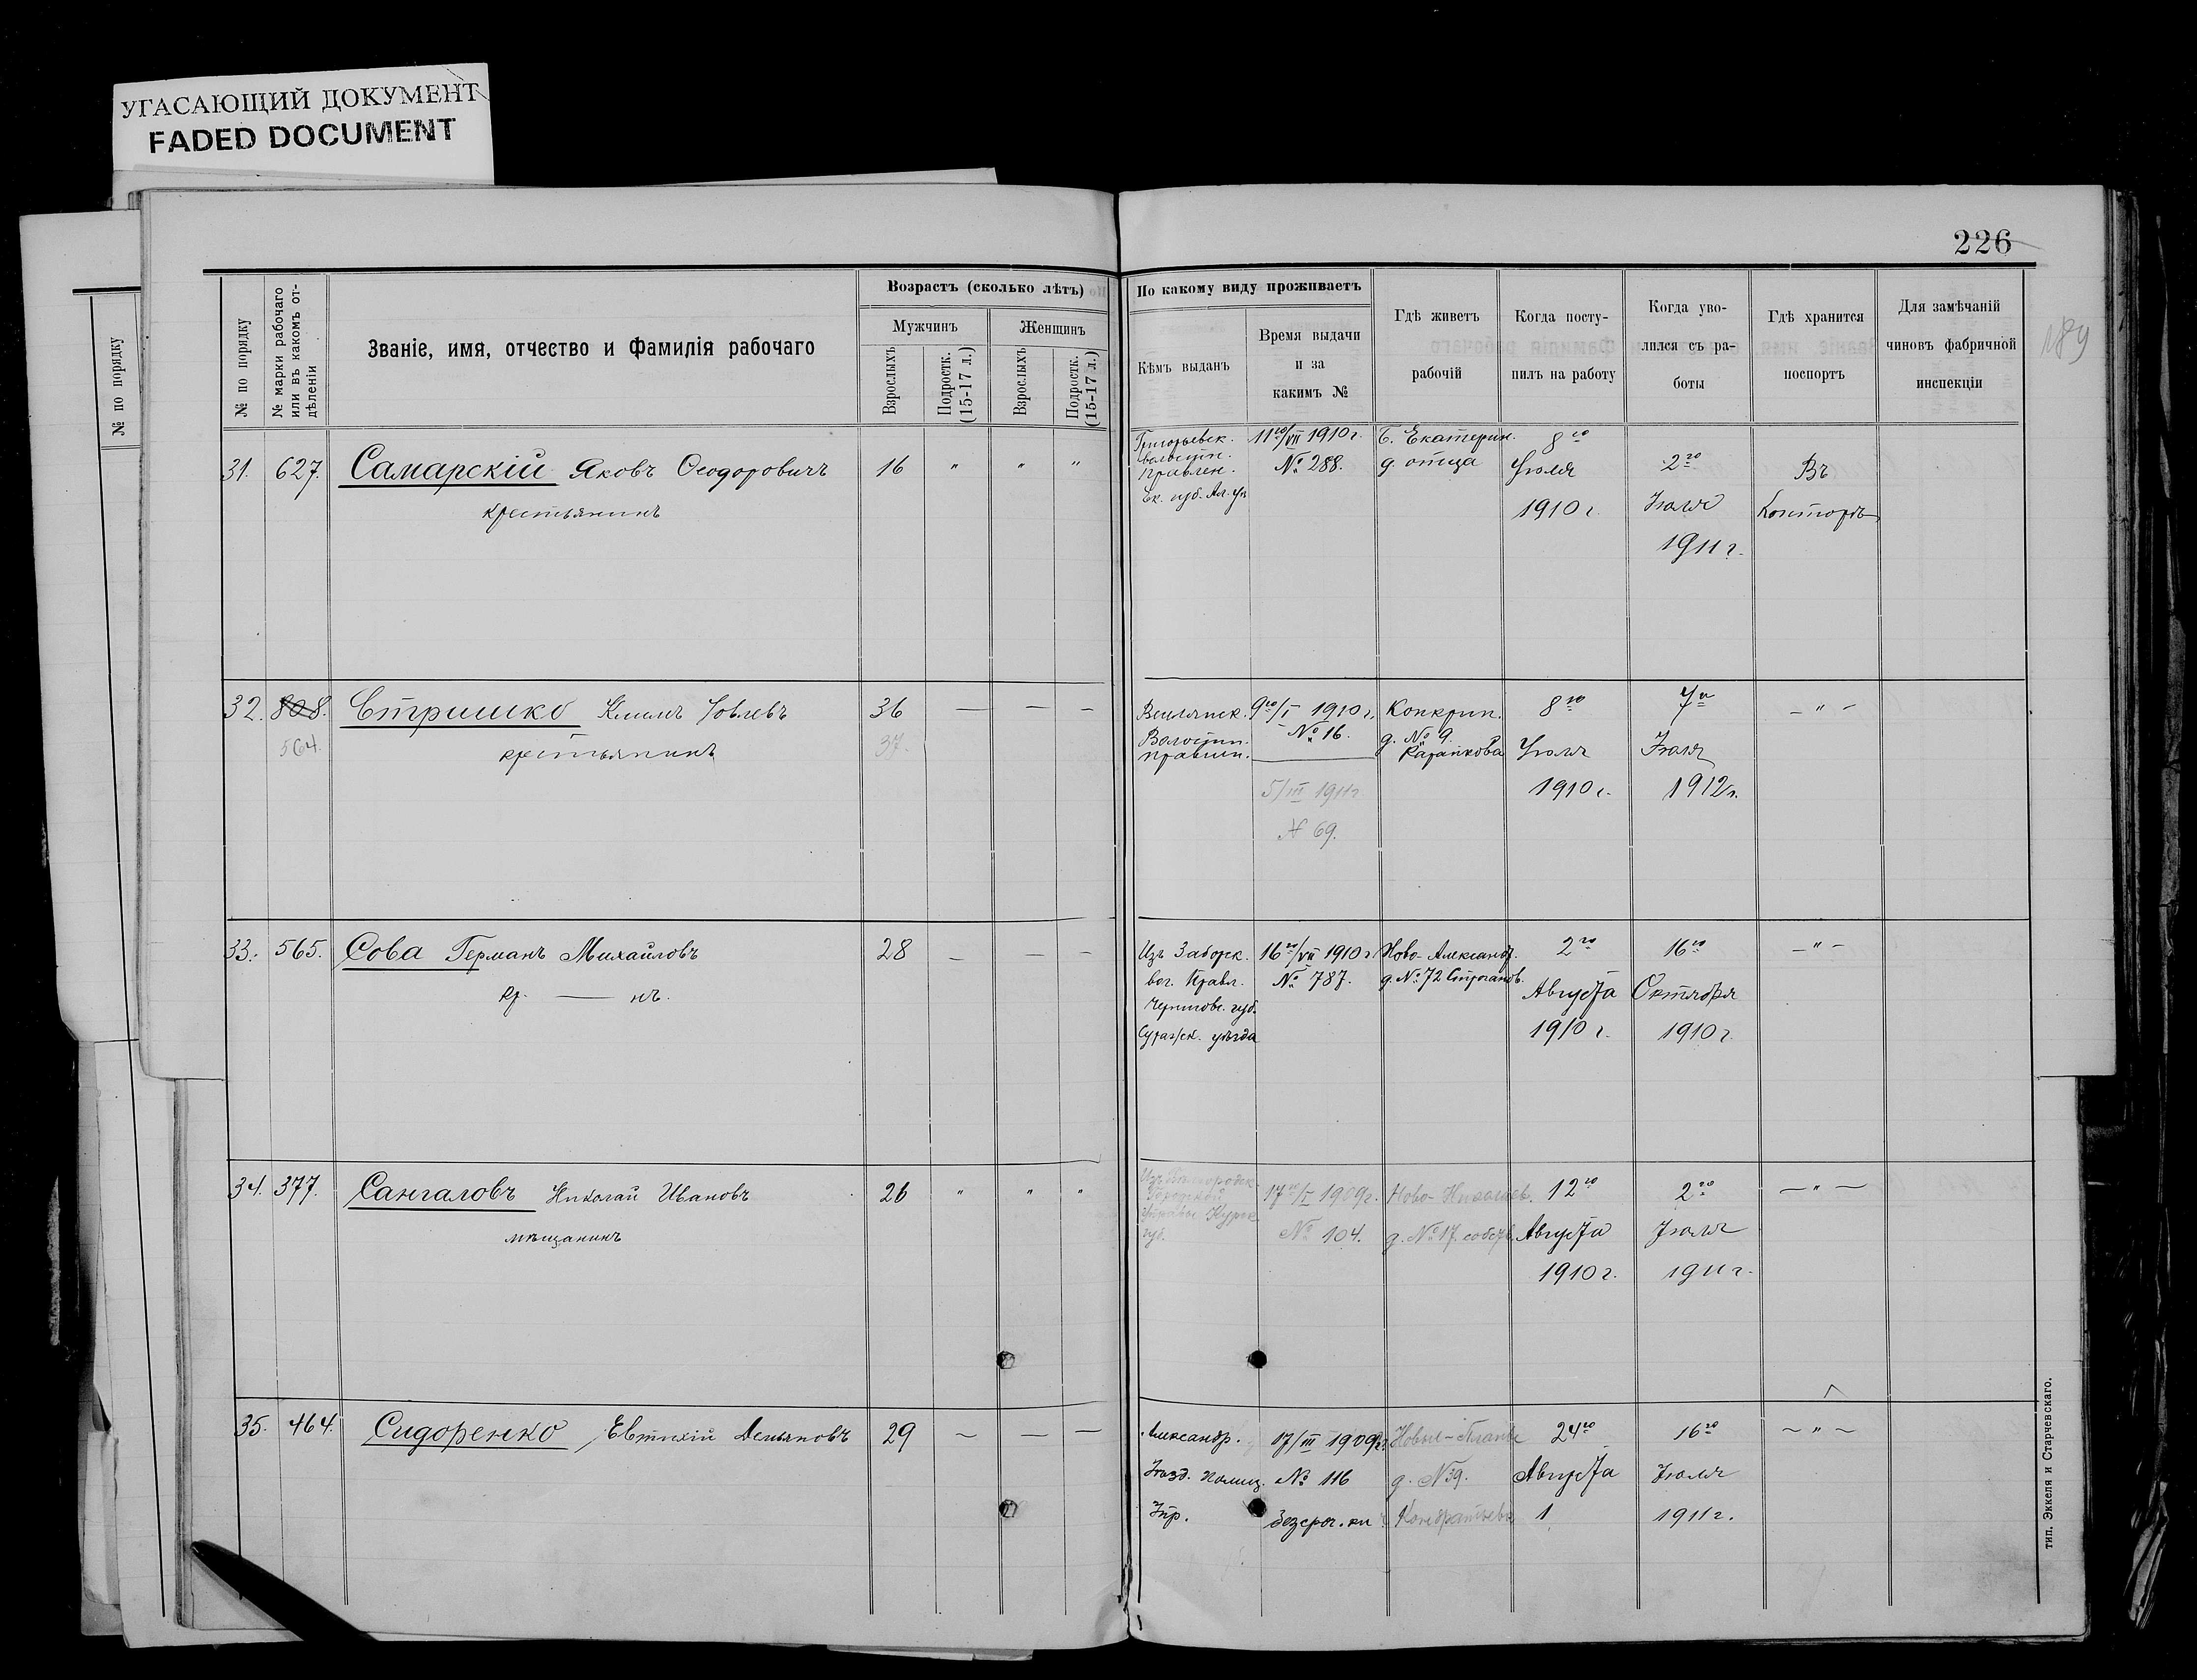 УГАСАЮЩИЙ ДОКУМЕНТ
FADED DOCUMENT
226
189
№ по порядку
№ по порядку
№ марки рабочаго
или въ какомъ от-
дѣленіи
Званіе, имя, отчество и фамилія рабочаго
Возрастъ (сколько лѣтъ)
Мужчинъ
Женщинъ
Взрослыхъ
Подростк.
(15-17 л.)
Взрослыхъ
Подростк.
(15-17 л.)
По какому виду проживаетъ
Кѣмъ выданъ
Время выдачи
и за
какимъ №
Гдѣ живетъ
рабочій
Когда посту-
пилъ на работу
Когда уво-
лился съ ра-
боты
Гдѣ хранится
поспортъ
Для замѣчаній
чиновъ фабричной
инспекціи
31. 627. Самарскій Яковъ Ѳеодоровичъ 16 " " "
крестьянинъ
Григорьевск.
волостн.
Правлен.
Ек. губ.
11го/VII 1910 г.
№ 288.
Б. Екатерин.
д. отца
8го
Іюля
1910 г.
2го
Іюля
1911 г.
Въ
Конторѣ
32. 808. Стришко Климъ Іовлевъ 36 — — —
564. крестьянинъ 37.
Волостн.
правлен.
9го/I 1910 г.
№ 16.
5/III 1911 г.
№ 69.
Конкрин.
д. № 9.
8го
Іюля
1910 г.
7го
Іюля
1912 г.
— " —
33. 565. Сова Германъ Михайловъ 28 — — —
кр. — нъ.
Изъ Заборск.
вол. Правл.
Чернигов. губ.
Суражск. уѣзда
16го/VII 1910 г.
№ 787.
Ново-Александр.
д. № 72 Строганов.
2го
Августа
1910 г.
16го
Октября
1910 г.
— " —
34. 377. Сангаловъ Николай Ивановъ 26 " " "
мѣщанинъ
Изъ
Курск.
губ.
17го/I 1909 г.
№ 104.
Ново-Николаев.
д. № 17. собств.
12го
Августа
1910 г.
2го
Іюля
1911 г.
— " —
35. 464. Сидоренко, Евтихій Демьяновъ 29 — — —
Александр.
Уѣзд. Полиц.
Упр.
17/III 1909 г.
№ 116
Безсроч. кн.
Новые-Планы
д. № 39.
Кондратьева
24го
Августа
1
16го
Іюля
1911 г.
— " —
тип. Эккеля и Старчевскаго.